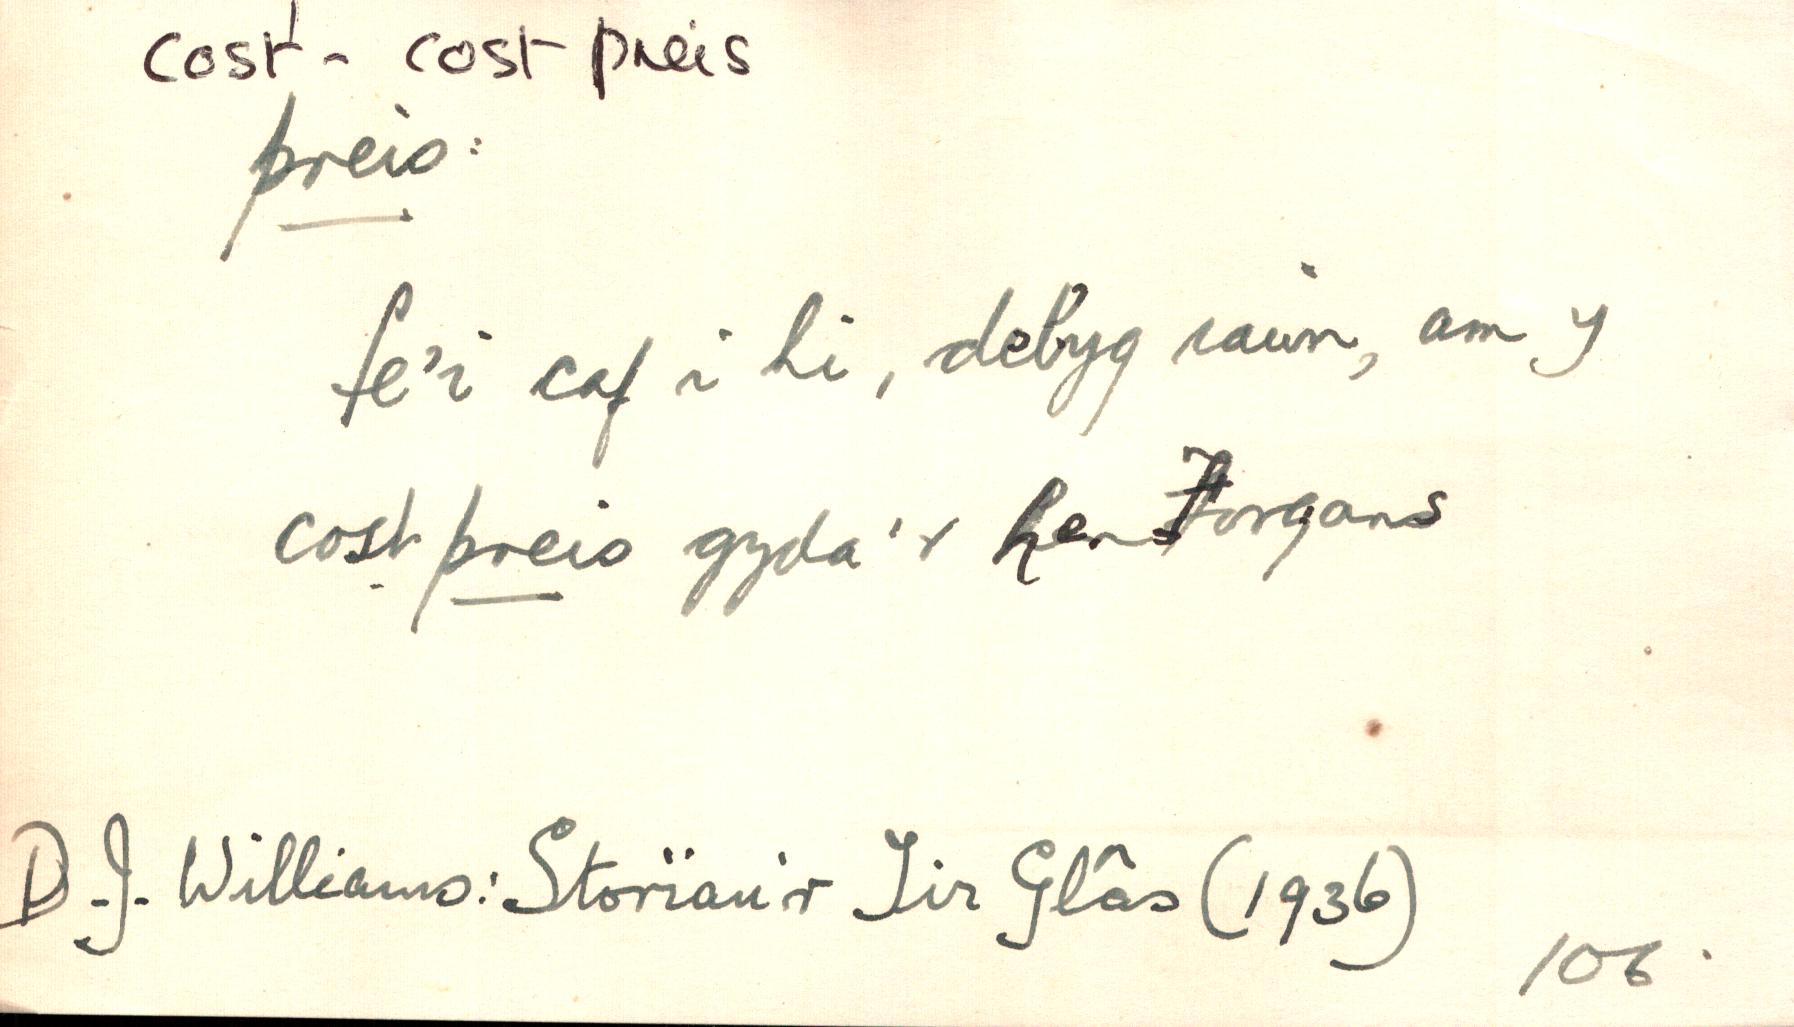 cost - cost preis
preis:
fe'i caf i hi, debyg iawn, am y
cost preis gyda'r hen Forgans
D.J. Williams: Storïau'r Tir Glâs (1936)
106.